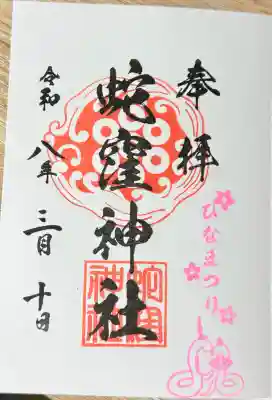 奉拝
蛇窪神社
令和八年三月十日
ひなまつり
蛇窪神社